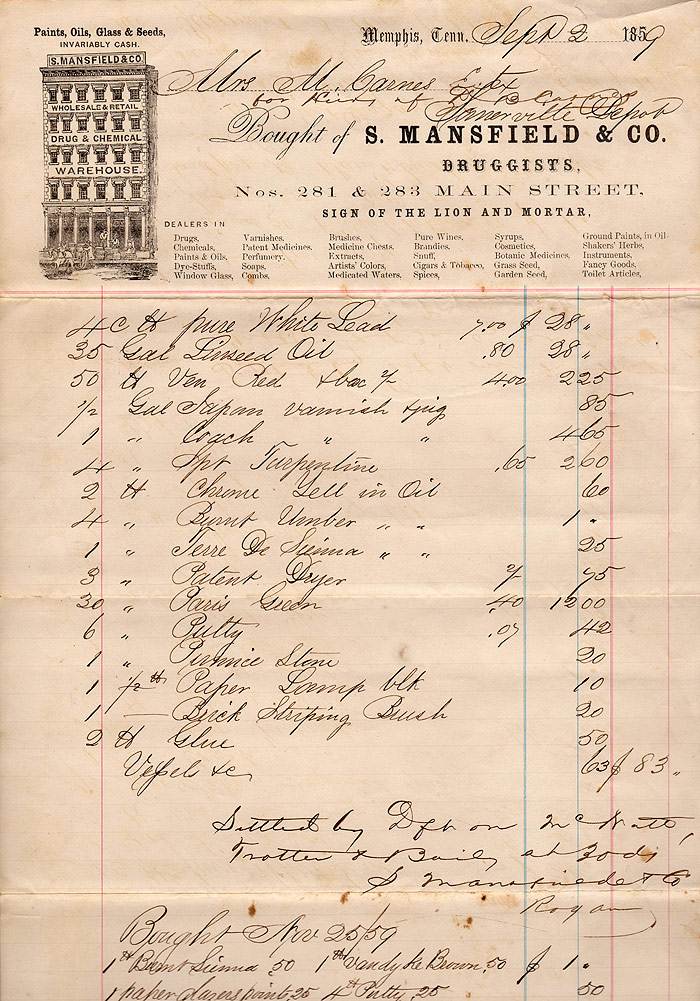 Paints, Oils, Glass & Seeds,
INVARIABLY CASH.
S. MANSFIELD & CO.
WHOLESALE & RETAIL
DRUG & CHEMICAL
WAREHOUSE.
Memphis, Tenn. Sept 2 1859
Mrs M. Carnes Extx
for
Somerville Depot
Bought of S. MANSFIELD & CO.
DRUGGISTS,
Nos. 281 & 283 MAIN STREET,
SIGN OF THE LION AND MORTAR,
DEALERS IN
Drugs, Varnishes, Brushes, Pure Wines, Syrups, Ground Paints, in Oil
Chemicals, Patent Medicines. Medicine Chests, Brandies, Cosmetics, Shakers' Herbs,
Paints & Oils, Perfumery. Extracts, Snuff, Botanic Medicines, Instruments,
Dye-Stuffs, Soaps, Artists' Colors, Cigars & Tobacco, Grass Seed, Fancy Goods,
Window Glass, Combs, Medicated Waters, Spices, Garden Seed, Toilet Articles,
4 c ℔ pure White Lead 7.00 $ 28 "
35 Gal Linseed Oil .80 28 "
50 ℔ Ven Red & box 4.00 2 25
1/2 Gal Japan varnish & jug 85
1 " Coach " " 4 65
4 " Spt Turpentine .65 2 60
2 ℔ Chrome Yell in Oil 60
4 " Burnt Umber " " 1 "
1 " Terre De Sienna " " 25
3 " Patent Dryer 75
30 " Paris Green .40 12 00
6 " Putty .07 42
1 " Pumice Stone 20
1 1/2 ℔ Paper Lamp blk 10
1 — Brick Striping Brush 20
2 ℔ Glue 50
Vessels &c 63 $ 83 "
Settled by Dft on McNatt,
Trotter & at
S Mansfield & Co
Rogan
Bought Nov 25/59
1 ℔ Burnt Sienna 50 1 ℔ Vandyke Brown, 50 $ 1 "
1 paper 25 4 ℔ Putty, 25 50